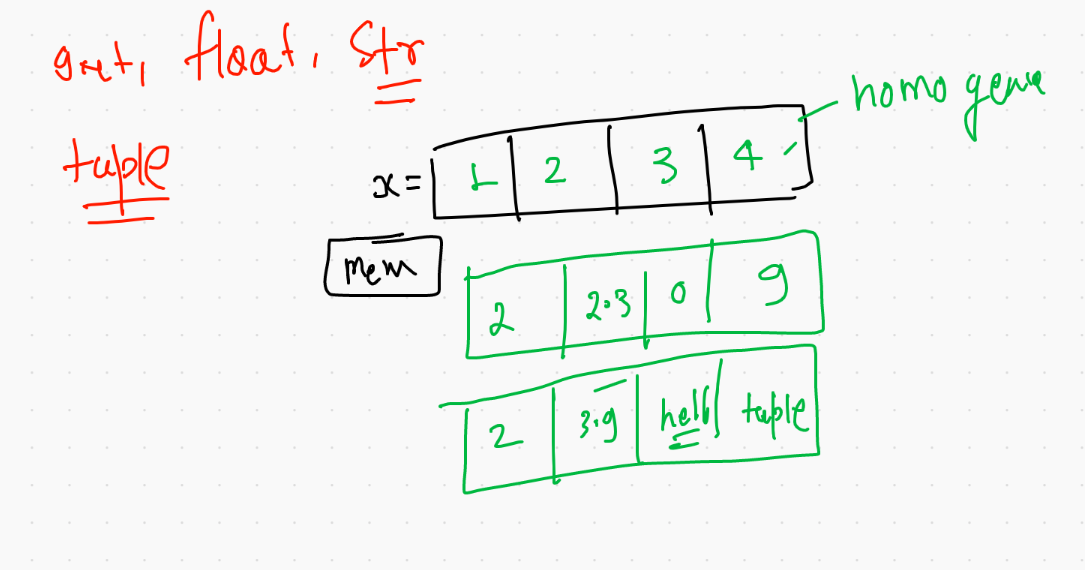 int, float, Str
tuple
homogene
x = 1 2 3 4
mem
2 2.3 0 9
2 3.9 hello tuple